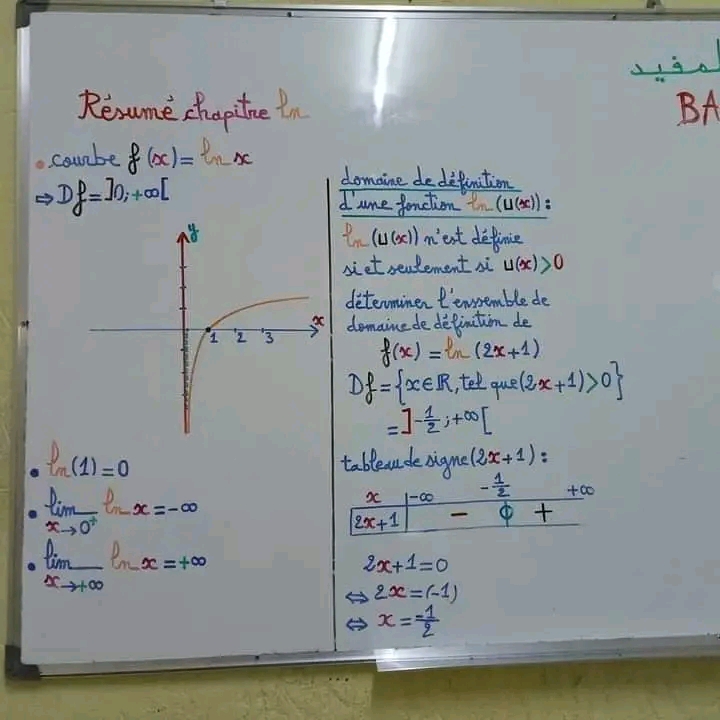 Résumé chapitre ln
• courbe f(x) = ln x
⇒ Df = ]0; +∞[
y
x
1 2 3
• ln(1) = 0
• lim ln x = -∞
x→0⁺
• lim ln x = +∞
x→+∞
domaine de définition
d'une fonction ln (u(x)) :
ln (u(x)) n'est définie
si et seulement si u(x) > 0
déterminer l'enssemble de
domaine de définition de
f(x) = ln (2x+1)
Df = {x ∈ ℝ, tel que (2x+1) > 0}
= ]-1/2 ; +∞[
tableau de signe (2x+1) :
x -∞ -1/2 +∞
2x+1 - 0 +
2x+1 = 0
⇔ 2x = (-1)
⇔ x = -1/2
المفيد
BA